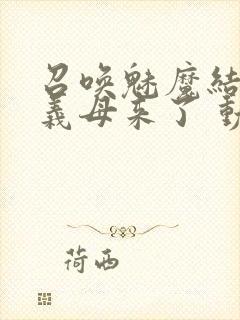 召唤魅魔结
义母来了 動
荷西